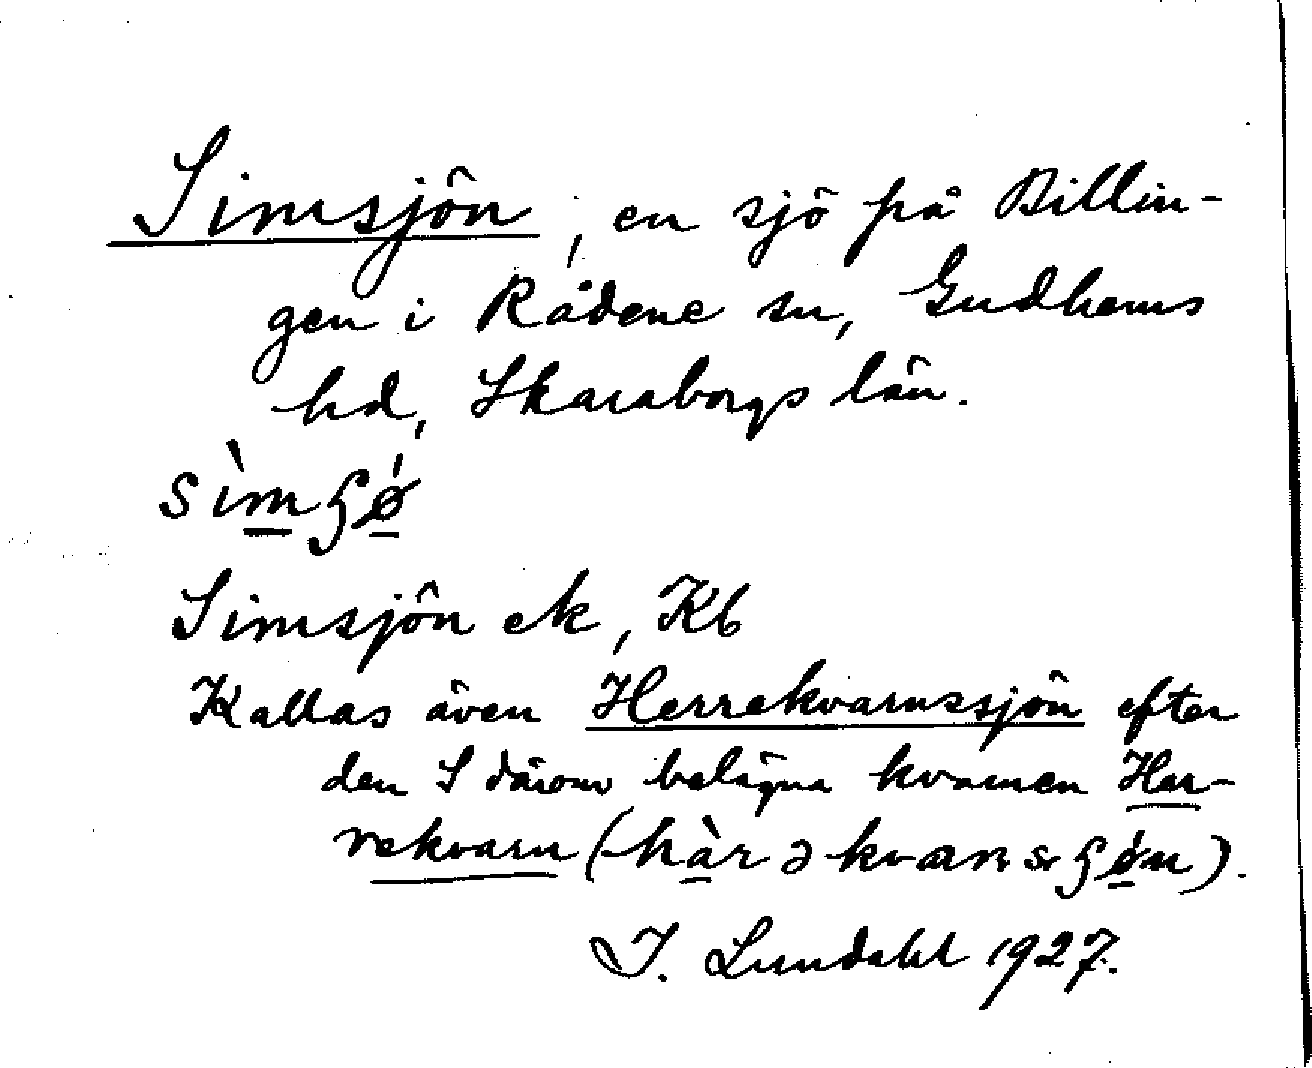 Simsjön, en sjö på Billin-
gen i Rådene sn, Gudhems
hd, Skaraborgs län.
sìmʂǿ
Simsjön ek, Kb
Kallas även Herrekvarnssjön efter
den S därom belägna kvarnen Her-
rekvarn (hàrəkvanʂʂǿn).
I. Lundahl 1927.